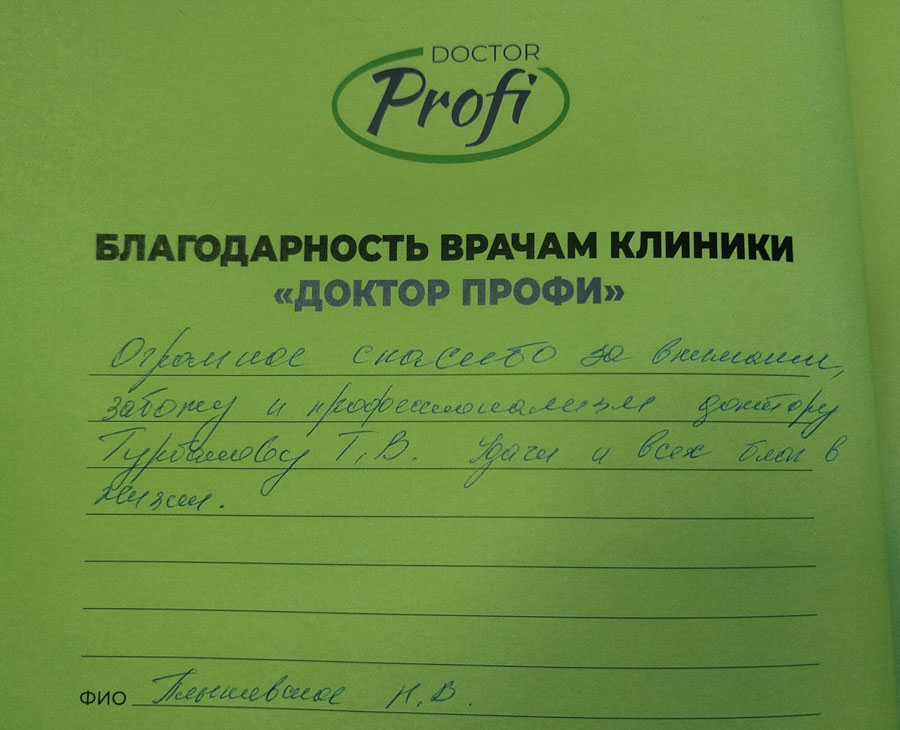 DOCTOR
Profi
БЛАГОДАРНОСТЬ ВРАЧАМ КЛИНИКИ
«ДОКТОР ПРОФИ»
Огромное спасибо за внимание,
заботу и профессионализм доктору
Т.В. Удачи и всех благ в
жизни.
ФИО Н.В.